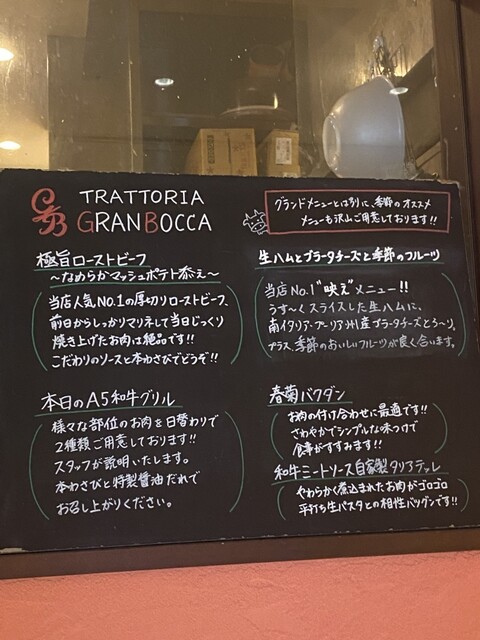 TRATTORIA
GRANBOCCA
グランドメニューとは別に、季節のオススメ
メニューも沢山ご用意しております!!
極旨ローストビーフ
〜なめらかマッシュポテト添え〜
当店人気No.1の厚切りローストビーフ、
前日からしっかりマリネして当日じっくり
焼き上げたお肉は絶品です!!
こだわりのソースと本わさびでどうぞ!!
生ハムとブラータチーズと季節のフルーツ
当店No.1"映え"メニュー!!
うす〜くスライスした生ハムに、
南イタリア・プーリア州産ブラータチーズとろ〜り。
プラス、季節のおいしいフルーツが良く合います。
本日のA5和牛グリル
様々な部位のお肉を日替わりで
2種類ご用意しております!!
スタッフが説明いたします。
本わさびと特製醤油だれで
お召し上がりください。
春菊バクダン
お肉の付け合わせに最適です!!
さわやかでシンプルな味つけで
食事がすすみます!!
和牛ミートソース自家製タリアテッレ
やわらかく煮込まれたお肉がゴロゴロ
平打ち生パスタとの相性バツグンです!!